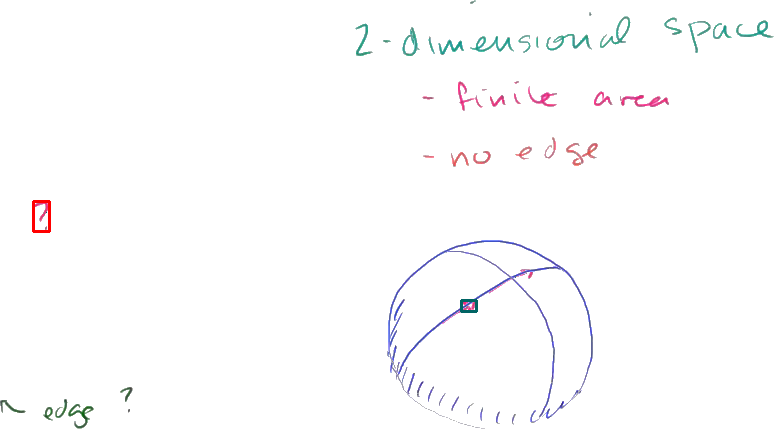 2-dimensional space
- finite area
- no edge
edge ?